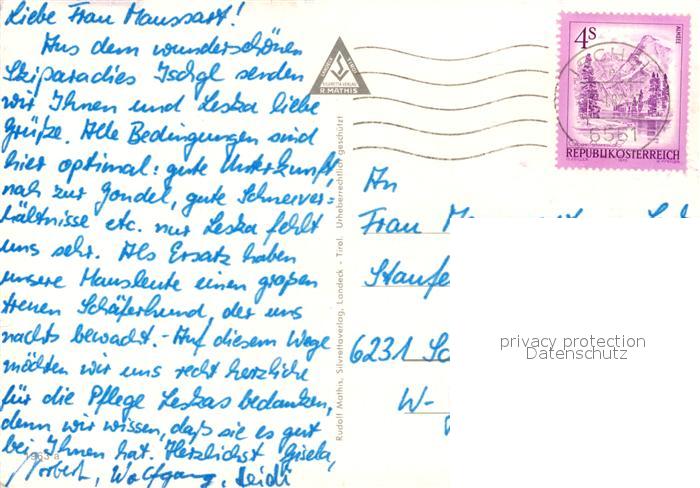 Liebe Frau Maussart!
Aus dem wunderschönen
Skiparadies Ischgl senden
wir Ihnen und Leska liebe
Grüße. Alle Bedingungen sind
hier optimal: gute Unterkunft,
nah zur Gondel, gute Schneever=
hältnisse etc. nur Leska fehlt
uns sehr. Als Ersatz haben
unsere Hausleute einen großen
treuen Schäferhund, der uns
nachts bewacht. - Auf diesem Wege
möchten wir uns recht herzliche
für die Pflege Leskas bedanken,
denn wir wissen, daß sie es gut
bei Ihnen hat. Herzlichst Gisela,
Norbert, Wolfgang, Heidi
R. MATHIS
Rudolf Mathis, Silvrettaverlag, Landeck - Tirol. Urheberrechtlich geschützt
4S
ALMSEE
6561
REPUBLIK ÖSTERREICH
An
Frau
6231
W-
privacy protection
Datenschutz